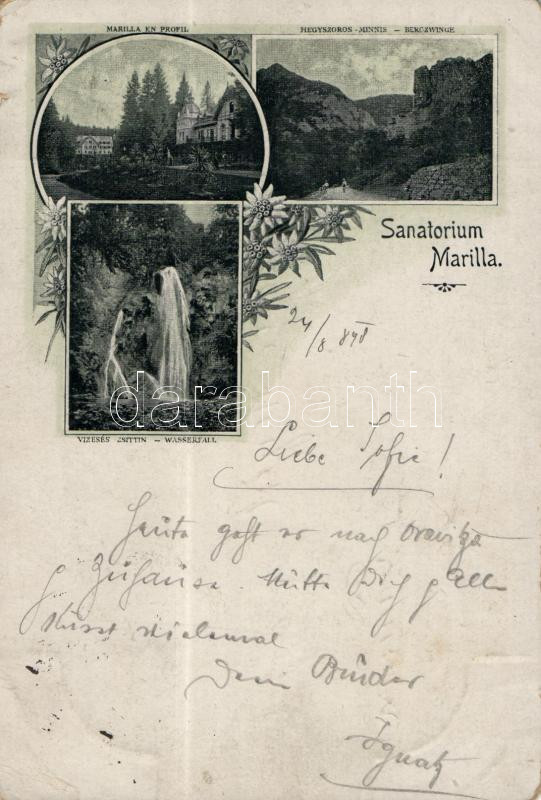 MARILLA EN PROFIL
HEGYSZOROS - MINNIS — BERGZWINGE
Sanatorium
Marilla.
VIZESÉS ZSITTIN — WASSERFALL
24/8 898
darabanth
Liebe Sofie!
Heute geht es nach Oravitza
Zuhause.
küsst vielemal
Dein Bruder
Ignatz